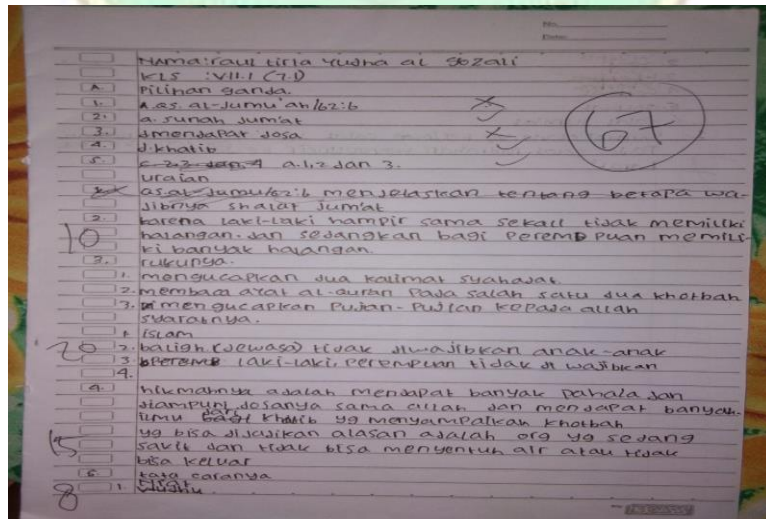 No.
Date:
Nama: raul tirla yudha al gozali
KLS : VII.1 (7.1)
A. Pilihan ganda.
1. A. as. al-Jumu'ah/62:6
2. a. sunah Jum'at
3. dmendapat dosa
4. d. khatib
5. a. 1,2 dan 3.
67
uraian
as. al-Jumu/62:6 menjelaskan tentang betapa wa-
jibnya shalat Jum'at
2. karena laki-laki hampir sama sekali tidak memiliki
10 halangan. dan sedangkan bagi Perempuan memili-
ki banyak halangan.
3. rukunya.
1. mengucapkan dua kalimat syahadat
2. membaca ayat al-quran Pada salah satu dua khotbah
3. mengucapkan Pujan-Pujian kepada allah
syaratnya.
1. islam
20 2. baligh (dewasa) tidak diwajibkan anak-anak
3. laki-laki, perempuan tidak di wajibkan
4.
4. hikmahnya adalah mendapat banyak Pahala dan
diampuni dosanya sama allah dan mendapat banyak
ilmu dari khatib yg menyampaikan khotbah
yg bisa dijadikan alasan adalah org yg sedang
15 sakit dan tidak bisa menyentuh air atau tidak
bisa keluar
6. tata caranya
8 1.